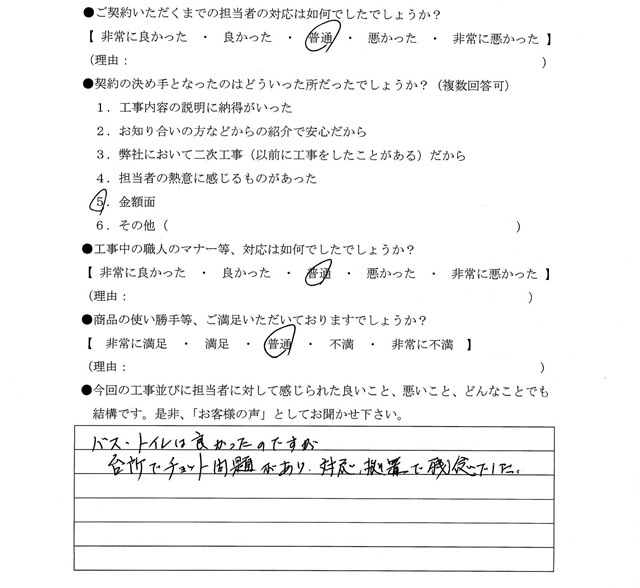 ●ご契約いただくまでの担当者の対応は如何でしたでしょうか？
【 非常に良かった ・ 良かった ・ 普通 ・ 悪かった ・ 非常に悪かった 】
（理由： ）
●契約の決め手となったのはどういった所だったでしょうか？（複数回答可）
１．工事内容の説明に納得がいった
２．お知り合いの方などからの紹介で安心だから
３．弊社において二次工事（以前に工事をしたことがある）だから
４．担当者の熱意に感じるものがあった
５．金額面
６．その他（ ）
●工事中の職人のマナー等、対応は如何でしたでしょうか？
【 非常に良かった ・ 良かった ・ 普通 ・ 悪かった ・ 非常に悪かった 】
（理由： ）
●商品の使い勝手等、ご満足いただいておりますでしょうか？
【 非常に満足 ・ 満足 ・ 普通 ・ 不満 ・ 非常に不満 】
（理由： ）
●今回の工事並びに担当者に対して感じられた良いこと、悪いこと、どんなことでも
結構です。是非、「お客様の声」としてお聞かせ下さい。
バス・トイレは良かったのですが
台所でチョット問題があり、対応、措置で残念でした。